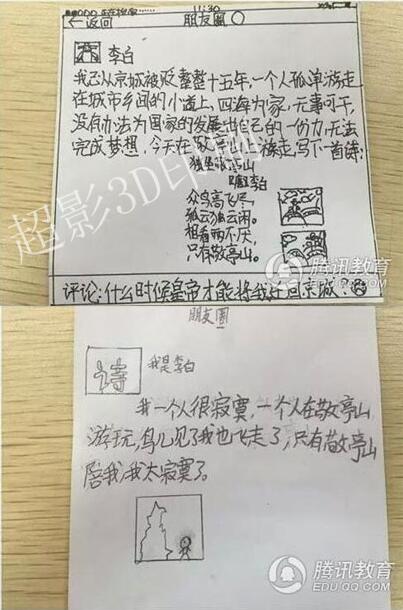 11:30
←返回 朋友圈
李白
我已从京城被贬整整十五年,一个人孤单游走
在城市乡间的小道上,四海为家,无事可干,
没有办法为国家的发展出自己的一份力,无法
完成梦想,今天在敬亭山上游走,写下一首诗:
独坐敬亭山
李白
众鸟高飞尽,
孤云独去闲。
相看两不厌,
只有敬亭山。
超影3D印刷
腾讯教育
EDU.QQ.COM
评论:什么时候皇帝才能将我召回京城?
朋友圈
诗
我是李白
我一个人很寂寞,一个人在敬亭山
游玩,鸟儿见了我也飞走了,只有敬亭山
陪我,我太寂寞了。
腾讯教育
EDU.QQ.COM